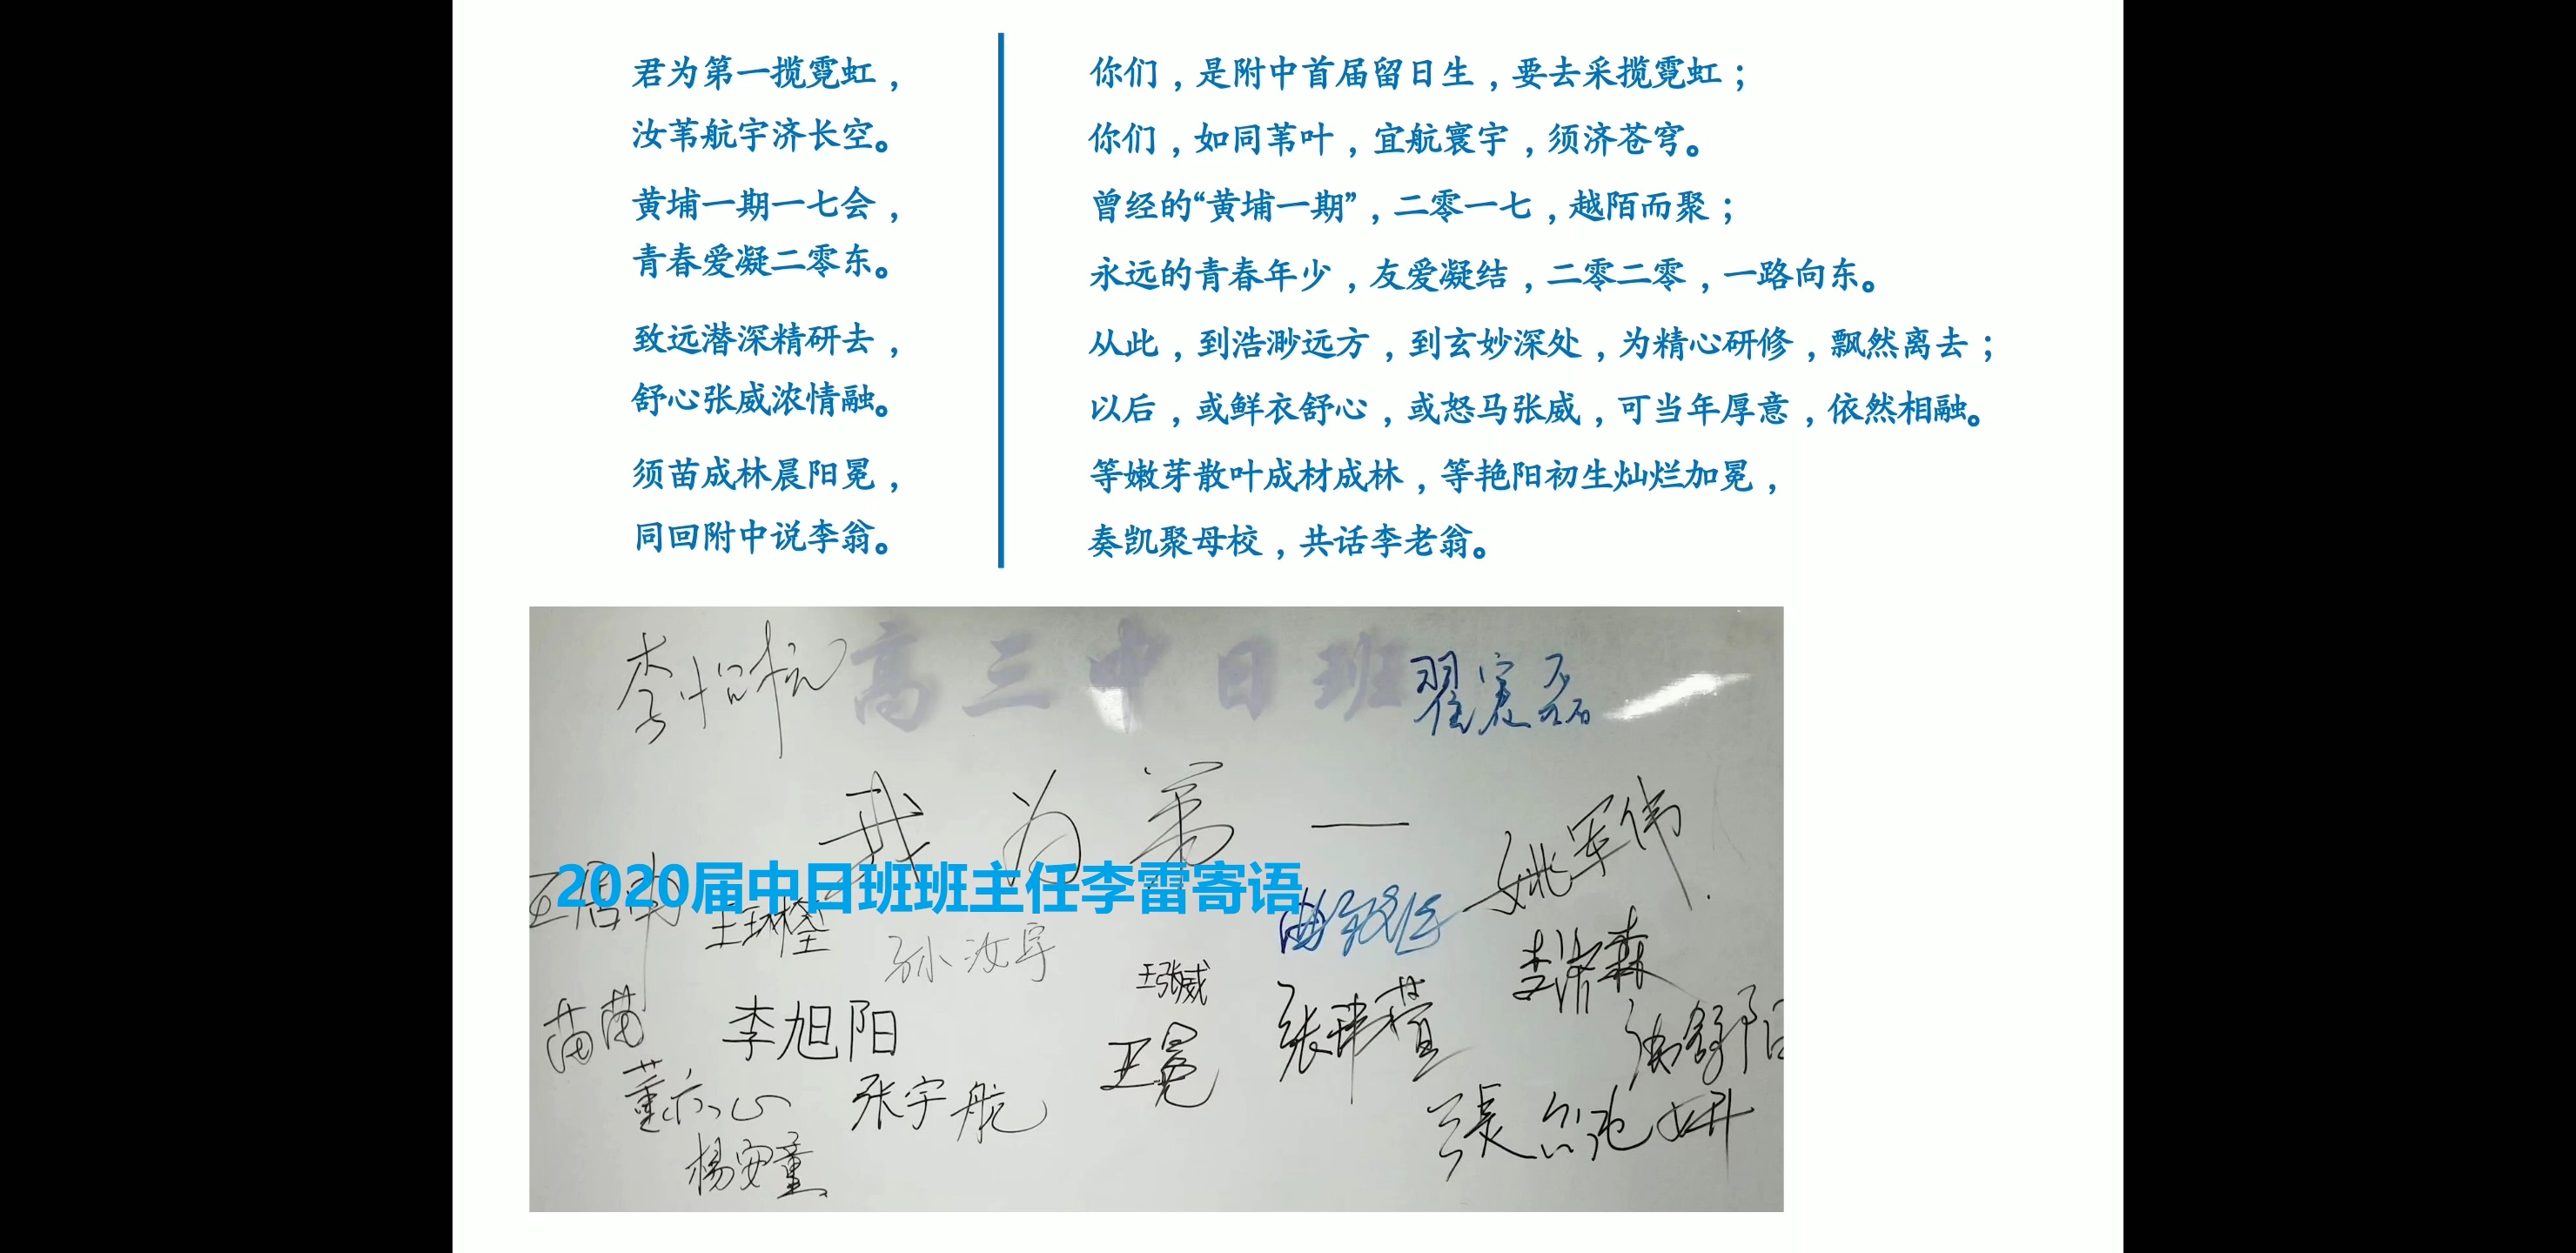 君为第一揽霓虹，
汝苇航宇济长空。
黄埔一期一七会，
青春爱凝二零东。
致远潜深精研去，
舒心张威浓情融。
须苗成林晨阳冕，
同回附中说李翁。
你们，是附中首届留日生，要去采揽霓虹；
你们，如同苇叶，宜航寰宇，须济苍穹。
曾经的“黄埔一期”，二零一七，越陌而聚；
永远的青春年少，友爱凝结，二零二零，一路向东。
从此，到浩渺远方，到玄妙深处，为精心研修，飘然离去；
以后，或鲜衣舒心，或怒马张威，可当年厚意，依然相融。
等嫩芽散叶成材成林，等艳阳初生灿烂加冕，
奏凯聚母校，共话李老翁。
高三中日班
我为第一
姚军伟
2020届中日班班主任李雷寄语
王琳栓
孙汝宇
王张威
苗苗
李旭阳
王冕
张宇航
杨安童